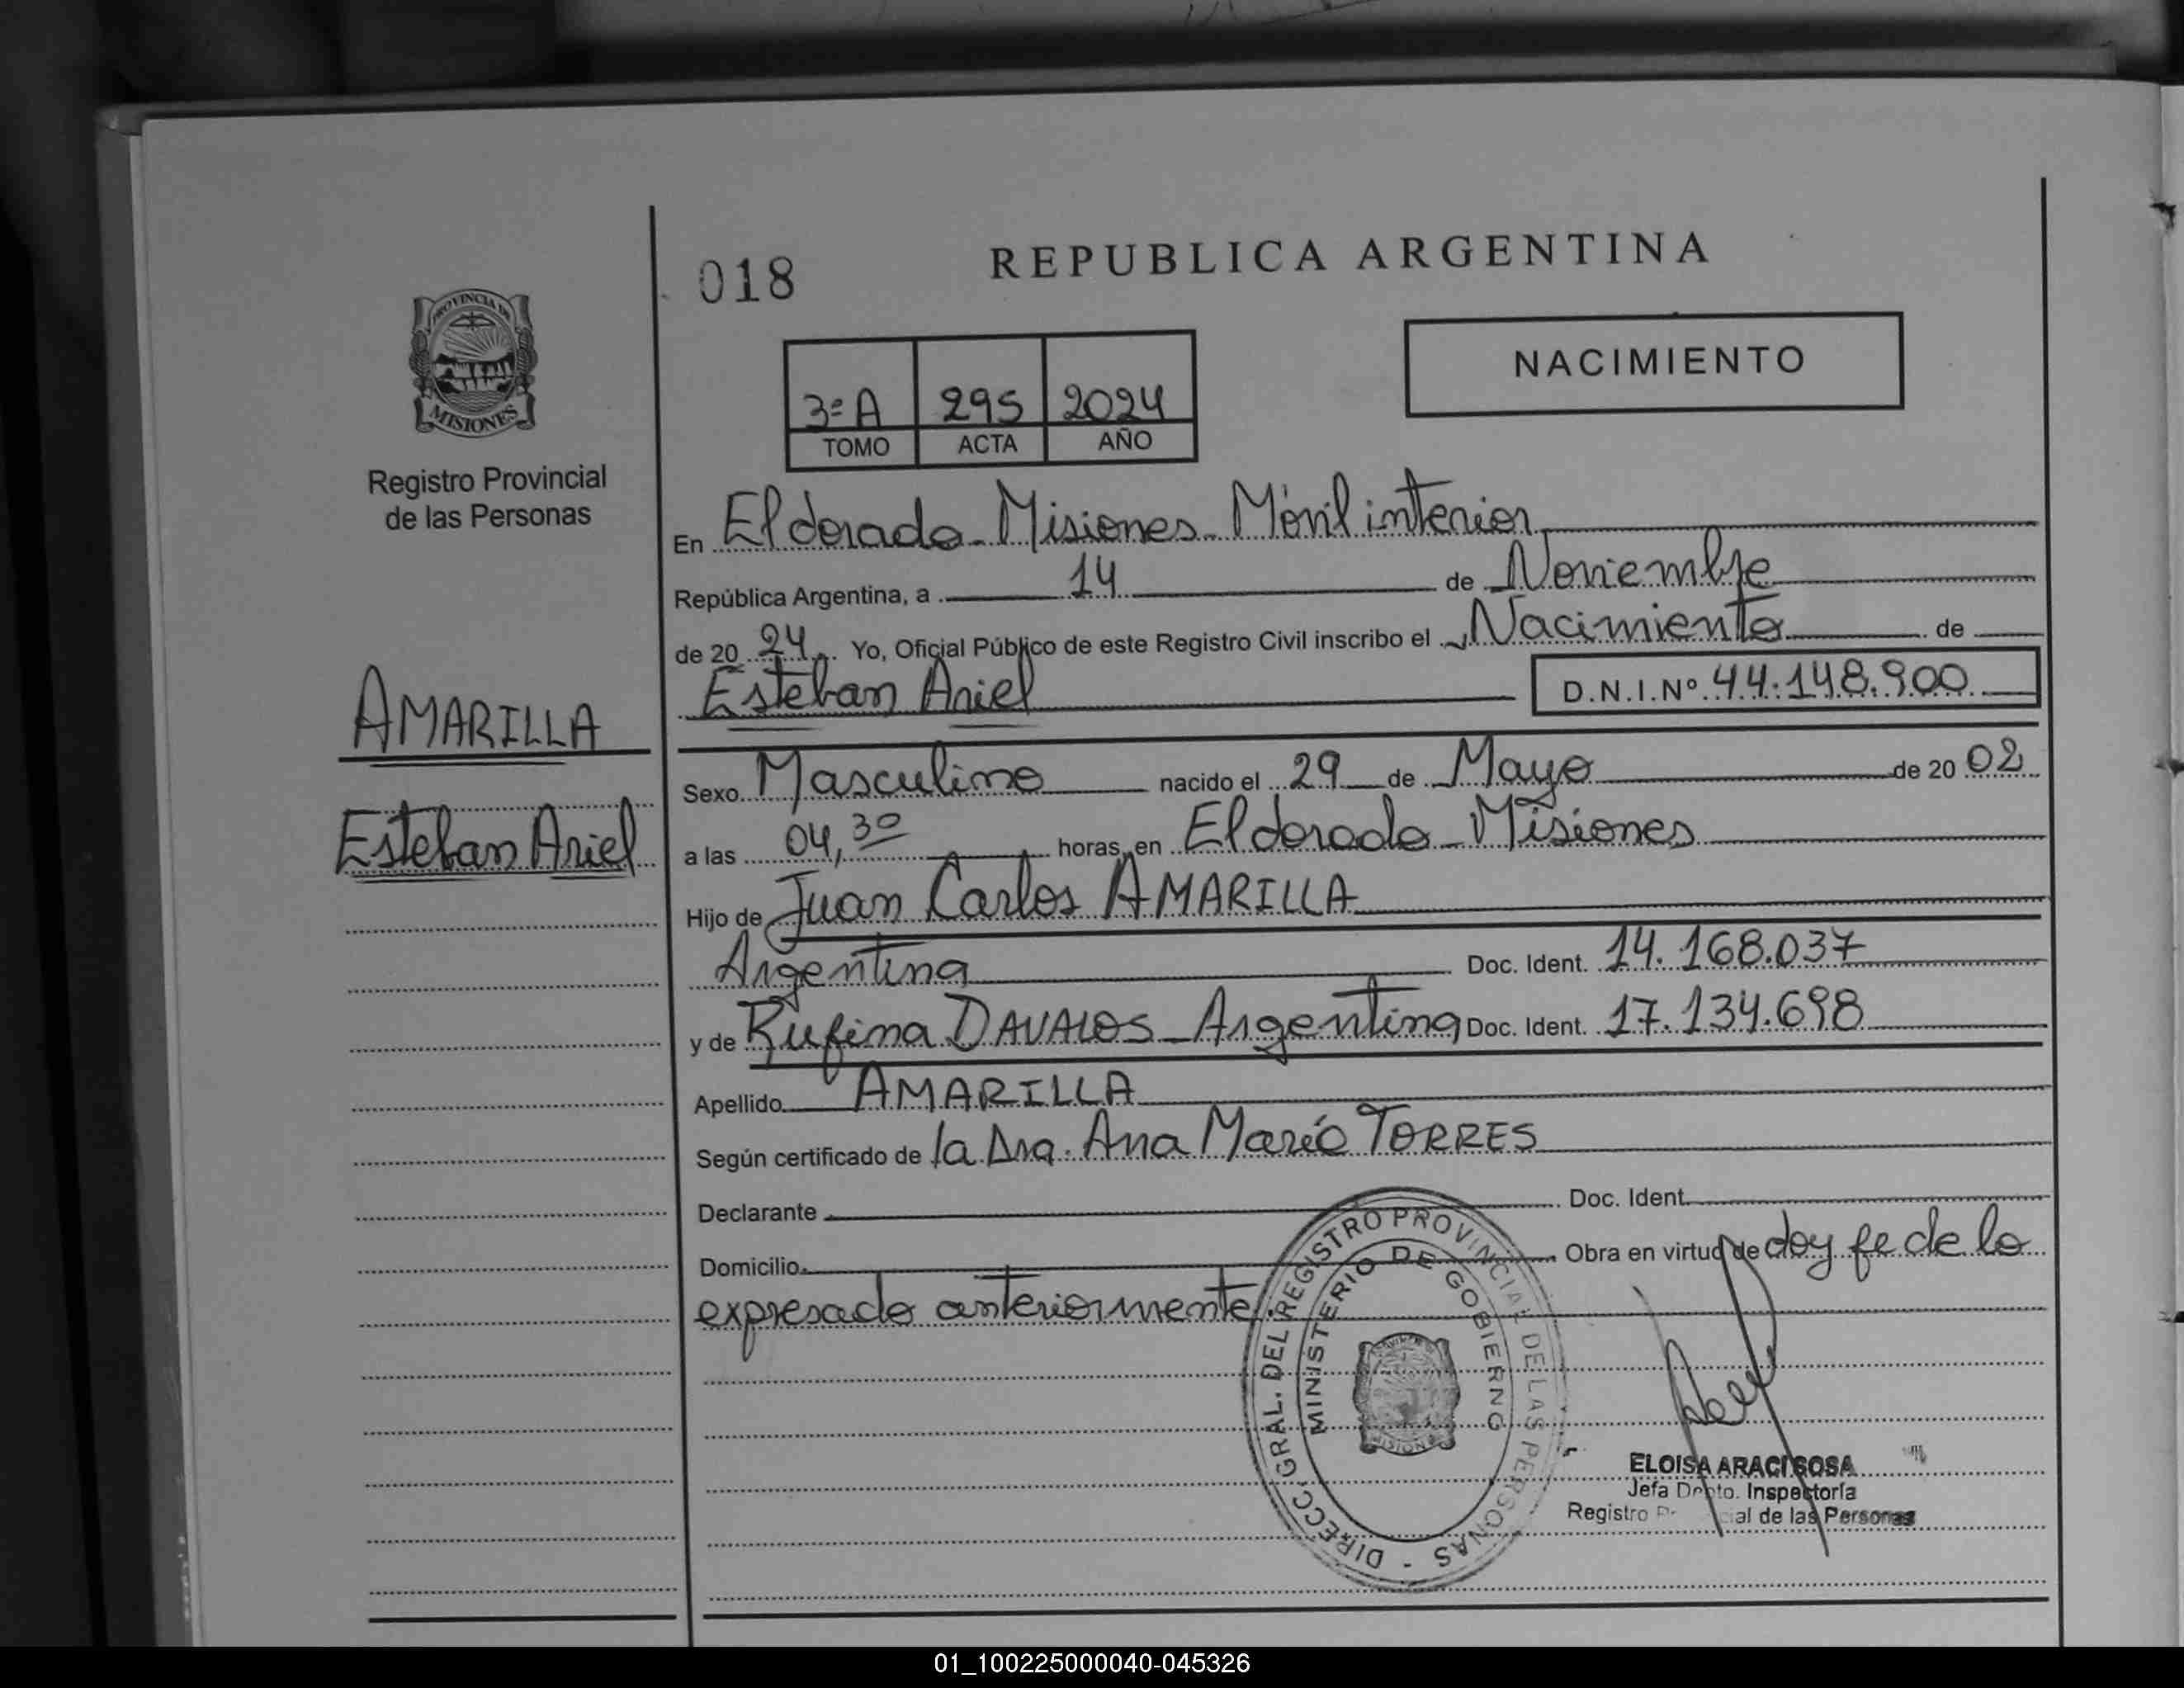 REPUBLICA ARGENTINA
018
PROVINCIA DE
MISIONES
Registro Provincial
de las Personas
NACIMIENTO
3ª A 295 2024
TOMO ACTA AÑO
En Eldorado - Misiones - Móvil interior
República Argentina, a 14 de Noviembre
de 20 24 Yo, Oficial Público de este Registro Civil inscribo el Nacimiento de
Esteban Ariel D.N.I.Nº 44.148.900
AMARILLA
Esteban Ariel
Sexo Masculino nacido el 29 de Mayo de 20 02
a las 04,30 horas, en Eldorado - Misiones
Hijo de Juan Carlos AMARILLA
Argentina Doc. Ident. 14.168.037
y de Rufina DAVALOS - Argentina Doc. Ident. 17.134.698
Apellido AMARILLA
Según certificado de la Dra. Ana María TORRES
Declarante Doc. Ident.
Domicilio Obra en virtud de doy fe de lo
expresado anteriormente.
DIRECC. GRAL. DEL REGISTRO PROVINCIAL DE LAS PERSONAS -
MINISTERIO DE GOBIERNO
MISIONES
ELOISA ARACI SOSA
Jefa Depto. Inspectoría
Registro al de las Personas
01_100225000040-045326